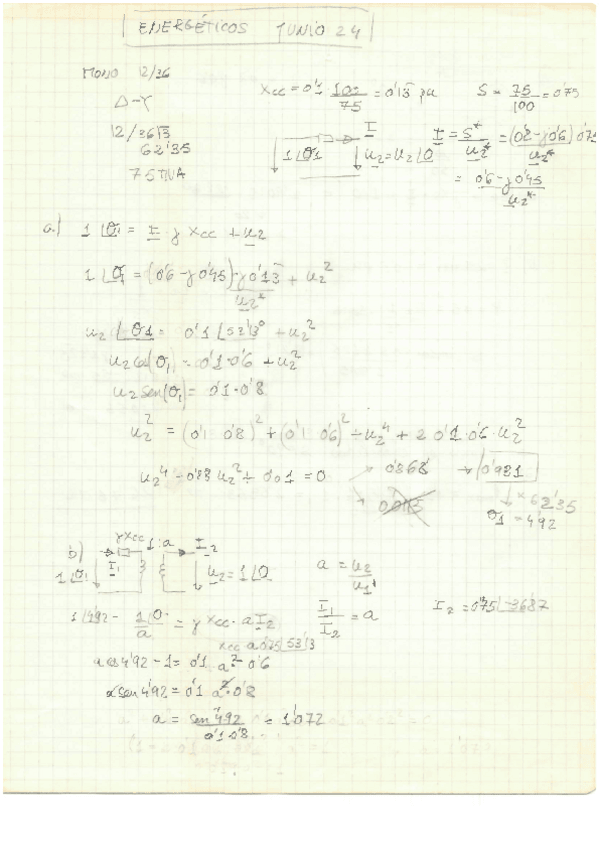 ENERGÉTICOS JUNIO 24
MONO 12/36
Δ-Y
12/36√3
62'35
75 MVA
Xcc = 0'1 100/75 = 0'13 pu
S = 75/100 = 0'75
1∟θ1 I u2 = u2∟0
I = S*/u2* = (0'8 - j0'6) 0'75/u2*
= 0'6 - j0'45/u2*
a.) 1∟θ1 = I j Xcc + u2
1∟θ1 = (0'6 - j0'45) · j0'13/u2* + u2²
u2∟θ1 = 0'1∟53'13° + u2²
u2 cos(θ1) = 0'1·0'6 + u2²
u2 sen(θ1) = 0'1·0'8
u2² = (0'1 0'8)² + (0'1 0'6)² + u2⁴ + 2 0'1·0'6·u2²
u2⁴ - 0'88 u2² + 0'01 = 0 → 0'868 → 0'931
x 62'35
θ1 = 4'92
b) jXcc 1:a I2
1∟θ1 I1 u2 = 1∟0
a = u2/u1'
I1/I2 = a
I2 = 0'75∟-36'87
1∟4'92 - 1∟0/a = j Xcc · a I2
Xcc a 0'75∟53'13
a cos 4'92 - 1 = 0'1 a² 0'6
a sen 4'92 = 0'1 a² 0'8
a = sen 4'92/0'1 0'8 = 1'072